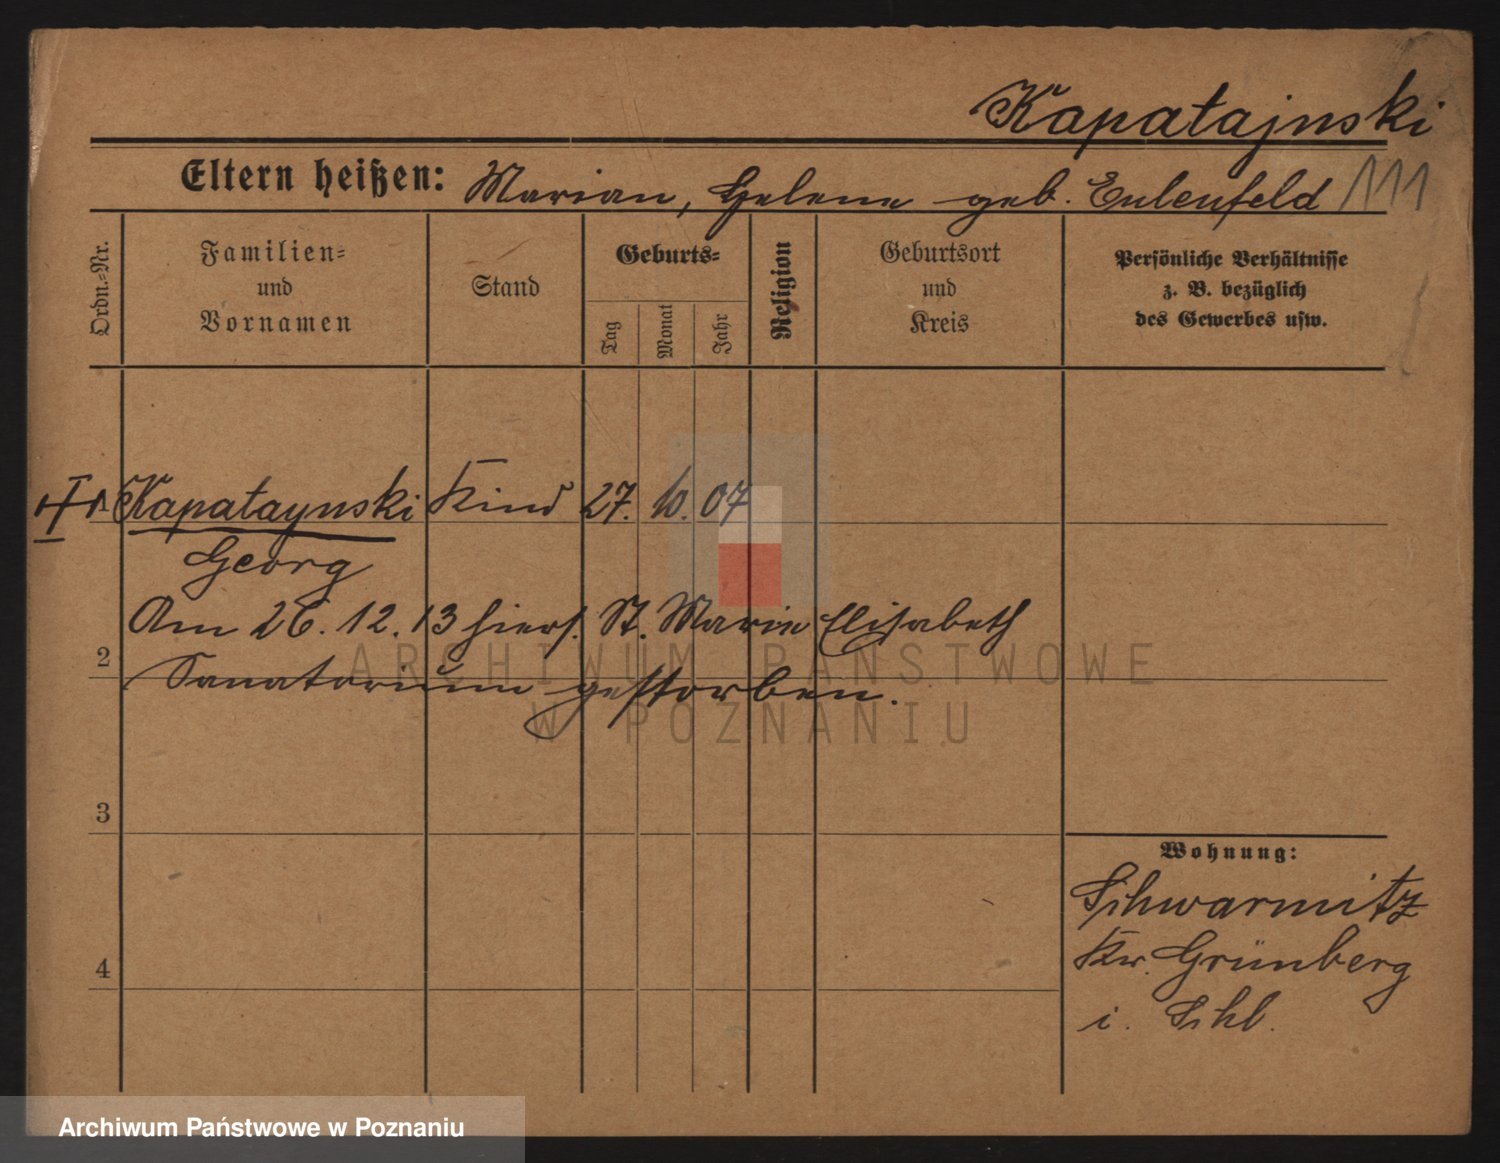 Kapatajnski
Eltern heißen: Marian, Helene geb. Eulenfeld 111
Ordn.-Nr.
Familien-
und
Vornamen
Stand
Geburts-
Tag
Monat
Jahr
Religion
Geburtsort
und
Kreis
Persönliche Verhältnisse
z. B. bezüglich
des Gewerbes usw.
1 Kapataynski Kind 27. 10. 07
Georg
Am 26. 12. 13 hiers. St. Marie Elisabeth
2
Sanatorium gestorben.
ARCHIWUM PAŃSTWOWE
W POZNANIU
3
Wohnung:
Schwarmitz
4
Kr. Grünberg
i. Schl.
Archiwum Państwowe w Poznaniu